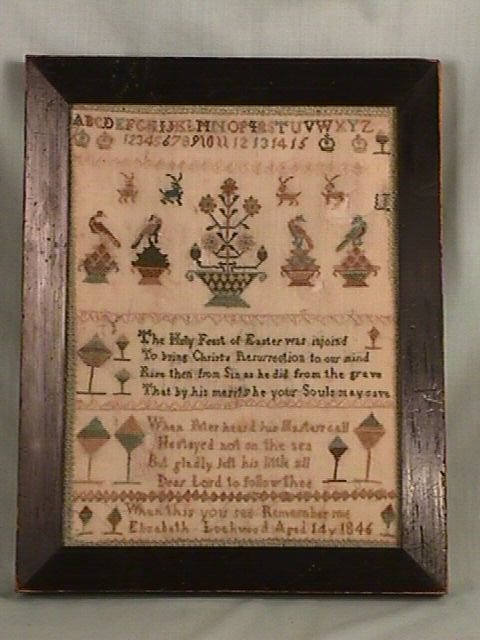 ABCDEFGHIJKLMNOPQRSTUVWXYZ
1 2 3 4 5 6 7 8 9 10 11 12 13 14 15
The Holy Feast of Easter was injoind
To bring Christs Resurrection to our mind
Rise then from Sin as he did from the grave
That by his merits he your Souls may save
When Peter heard his Masters call
He stayed not on the sea
But gladly left his little all
Dear Lord to follow thee
When this you see Remember me
Elizabeth Lockwood Aged 14 y 1846